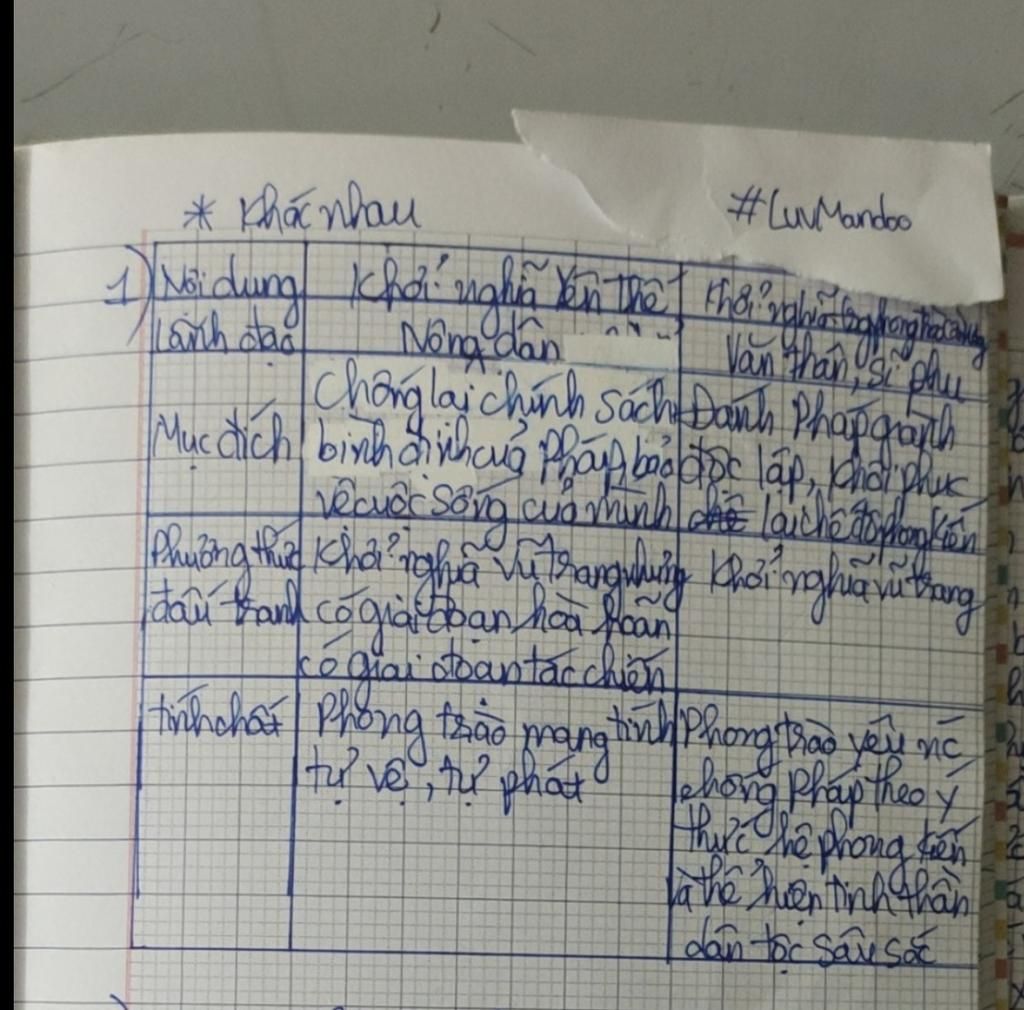 * Khác nhau
#LuvMandoo
1) Nội dung
Khởi nghĩa Yên Thế
Khởi nghĩa trong phong trào
Lãnh đạo
Nông dân
Văn thân, sĩ phu
Mục đích
Chống lại chính sách
bình định của Pháp, bảo
vệ cuộc sống của mình
Đánh Pháp giành
độc lập, khôi phục
lại chế độ phong kiến
Phương thức
đấu tranh
Khởi nghĩa vũ trang nhưng
có giai đoạn hoà hoãn
có giai đoạn tác chiến
Khởi nghĩa vũ trang
tính chất
Phong trào mang tính
tự vệ, tự phát
Phong trào yêu nc
chống Pháp theo ý
thức hệ phong kiến
và thể hiện tinh thần
dân tộc sâu sắc